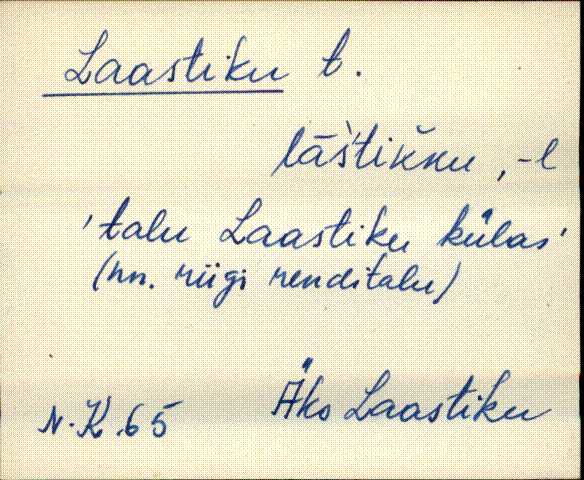 Laastiku t.
lāš̀tik̆ku, -l
'talu Laastiku külas'
(nn. riigi renditalu)
N.K.65 Äks Laastiku